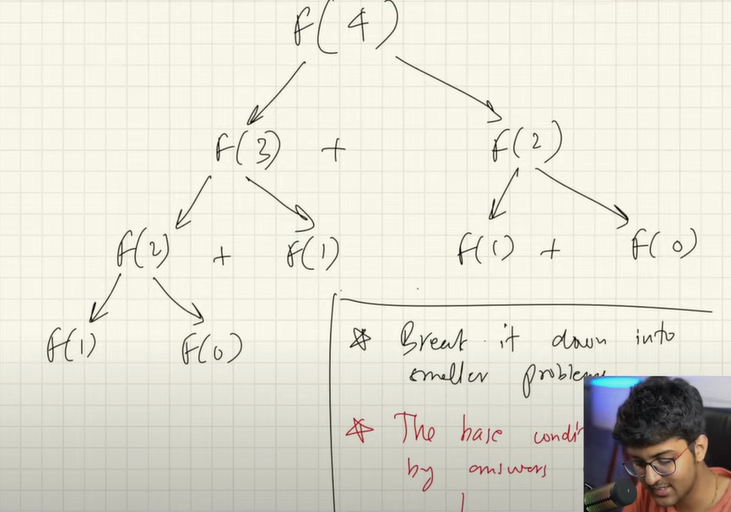 F(4)
F(3) + F(2)
F(2) + F(1) F(1) + F(0)
F(1) F(0)
* Break it down into
smaller
* The base
by answers